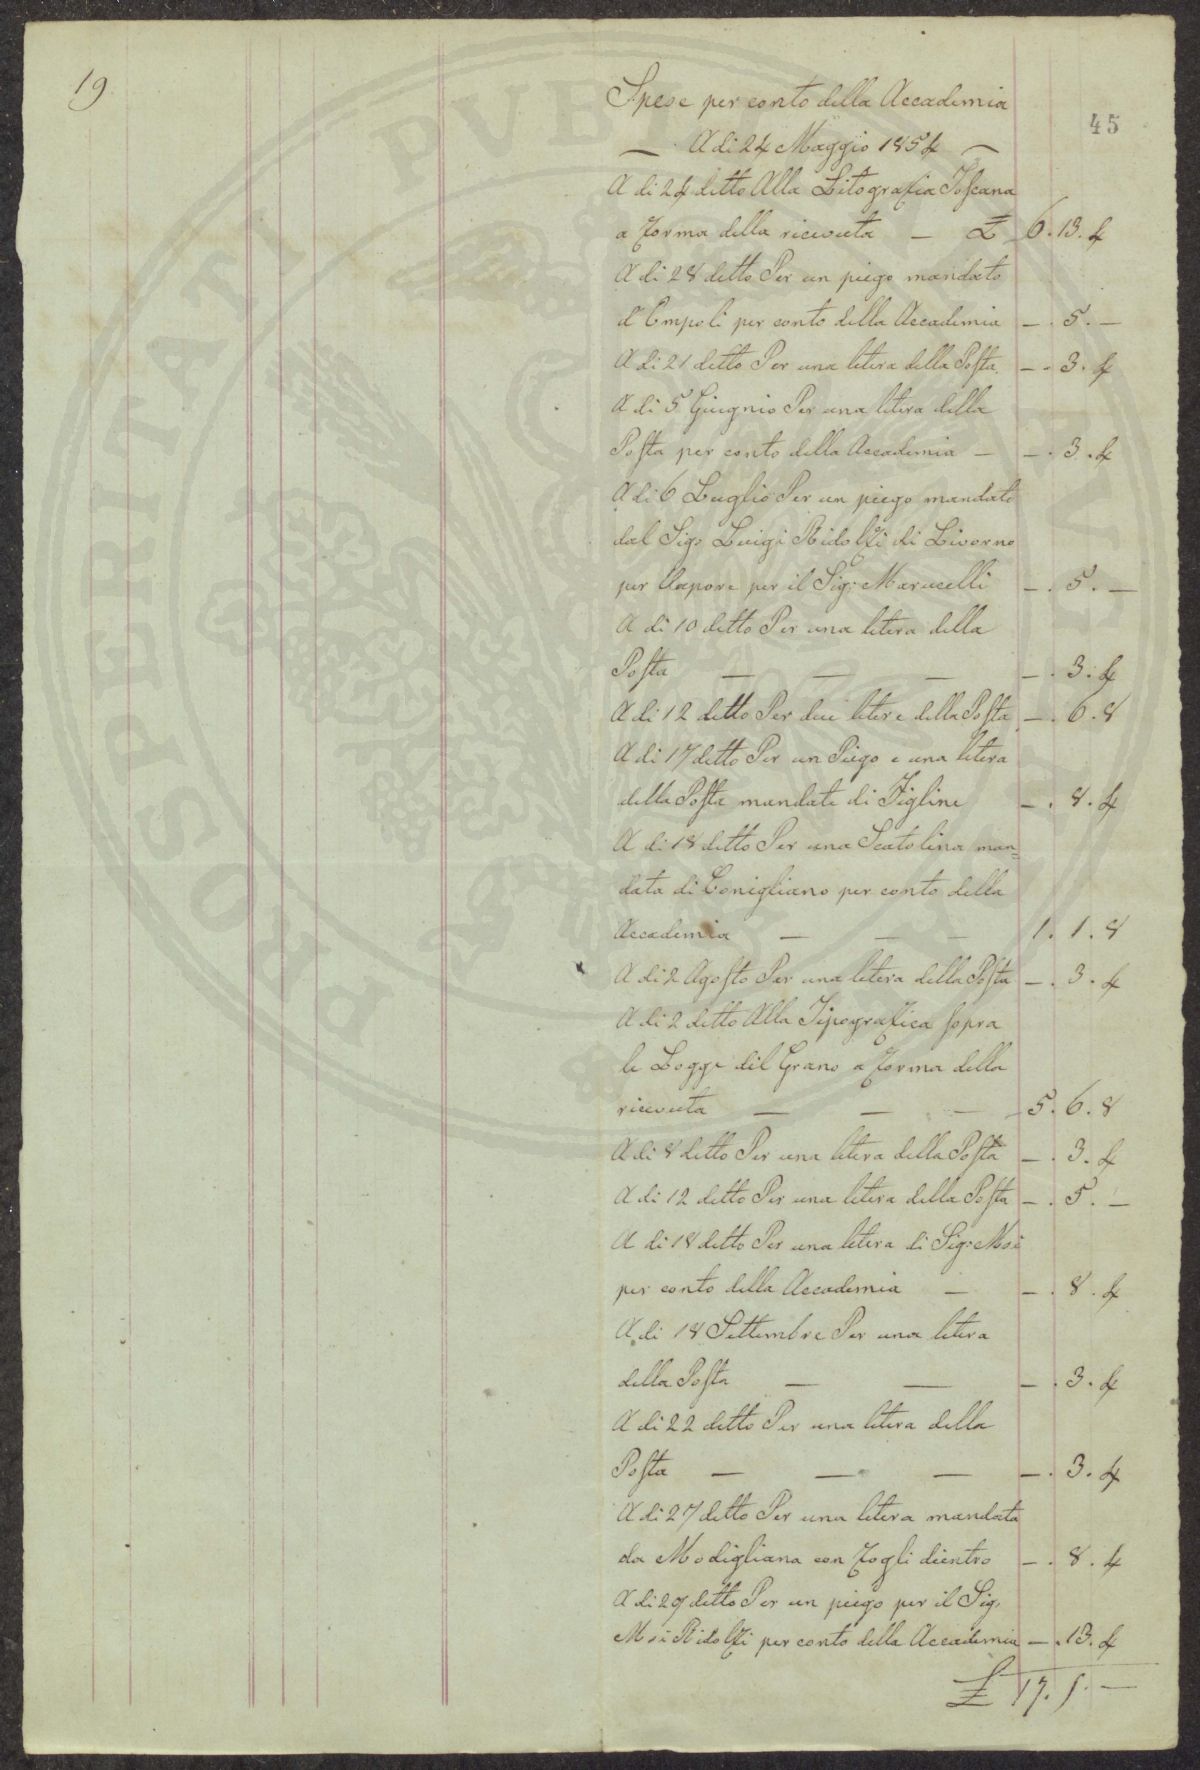 19
45
Spese per conto della Accademia
— A di 24 Maggio 1854 —
A di 24 ditto Alla Litografia Toscana
a forma della riceuuta — £ 6. 13. 4
A di 28 ditto Per un piego mandato
d'Empoli per conto della Accademia — . 5 . —
A di 21 ditto Per una letera della Posta — . 3. 4
A di 5 Giugnio Per una letera della
Posta per conto della Accademia — — . 3 . 4
A di 6 Luglio Per un piego mandato
dal Sigr Luigi Ridolfi di Livorno
per Vapore per il Sigr Marucelli — . 5 . —
A di 10 ditto Per una letera della
Posta — — — — . 3. 4
A di 12 ditto Per due letere della Posta — . 6. 8
A di 17 ditto Per un Piego e una letera
della Posta mandate di Figline — . 8. 4
A di 18 ditto Per una Scatolina man=
data di Conigliano per conto della
Accademia — — — 1. 1. 8
A di 2 Agosto Per una letera della Posta — . 3. 4
A di 2 ditto Alla Tipografica sopra
le Logge dil Grano a forma della
riceuuta — — — 5. 6. 8
A di 8 ditto Per una letera della Posta — . 3. 4
A di 12 ditto Per una letera della Posta — . 5 . —
A di 18 ditto Per una letera di Sigr Moi
per conto della Accademia — — . 8. 4
A di 18 Settembre Per una letera
della Posta — — — . 3. 4
A di 22 ditto Per una letera della
Posta — — — — . 3. 4
A di 27 ditto Per una letera mandata
da Modigliana con fogli dientro — . 8. 4
A di 29 ditto Per un piego per il Sig.
Moi Ridolfi per conto della Accademia — . 13. 4
£ 17. 1. —
PROSPERITATI PVBLICAE AVGENDAE